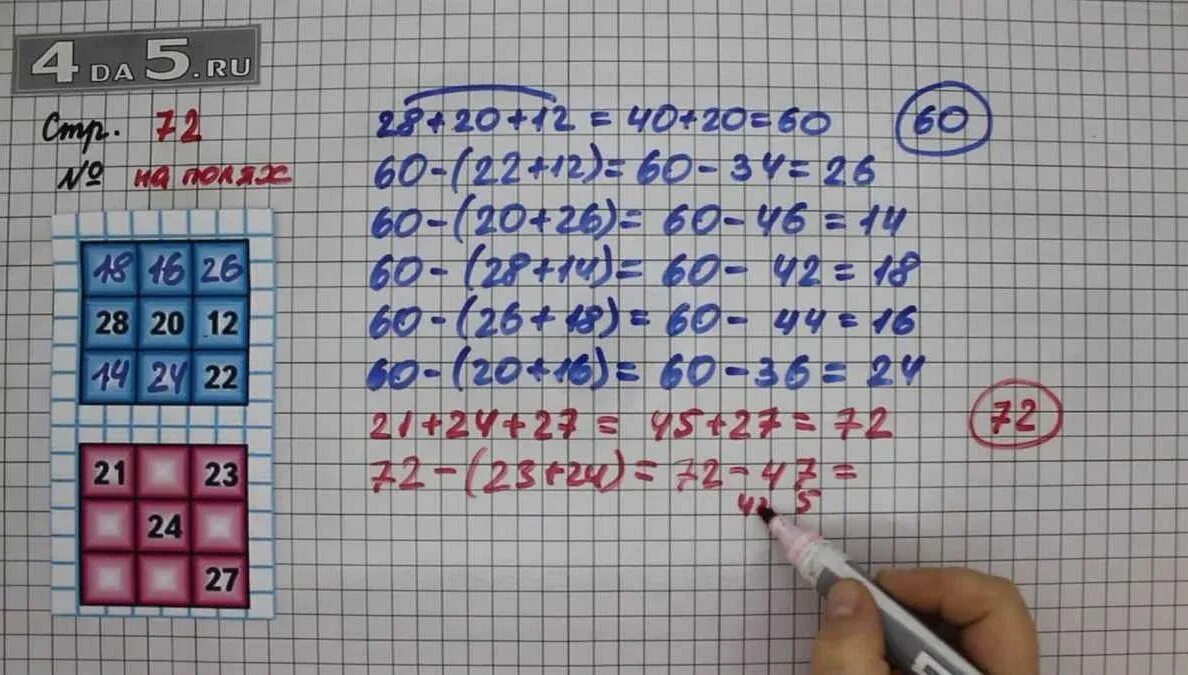 4DA5.RU
Стр. 72
№ на полях
18 16 26
28 20 12
14 24 22
21 23
24
27
28+20+12=40+20=60
60
60-(22+12)=60-34=26
60-(20+26)=60-46=14
60-(28+14)=60-42=18
60-(26+18)=60-44=16
60-(20+16)=60-36=24
21+24+27=45+27=72
72
72-(23+24)=72-47=
42 5